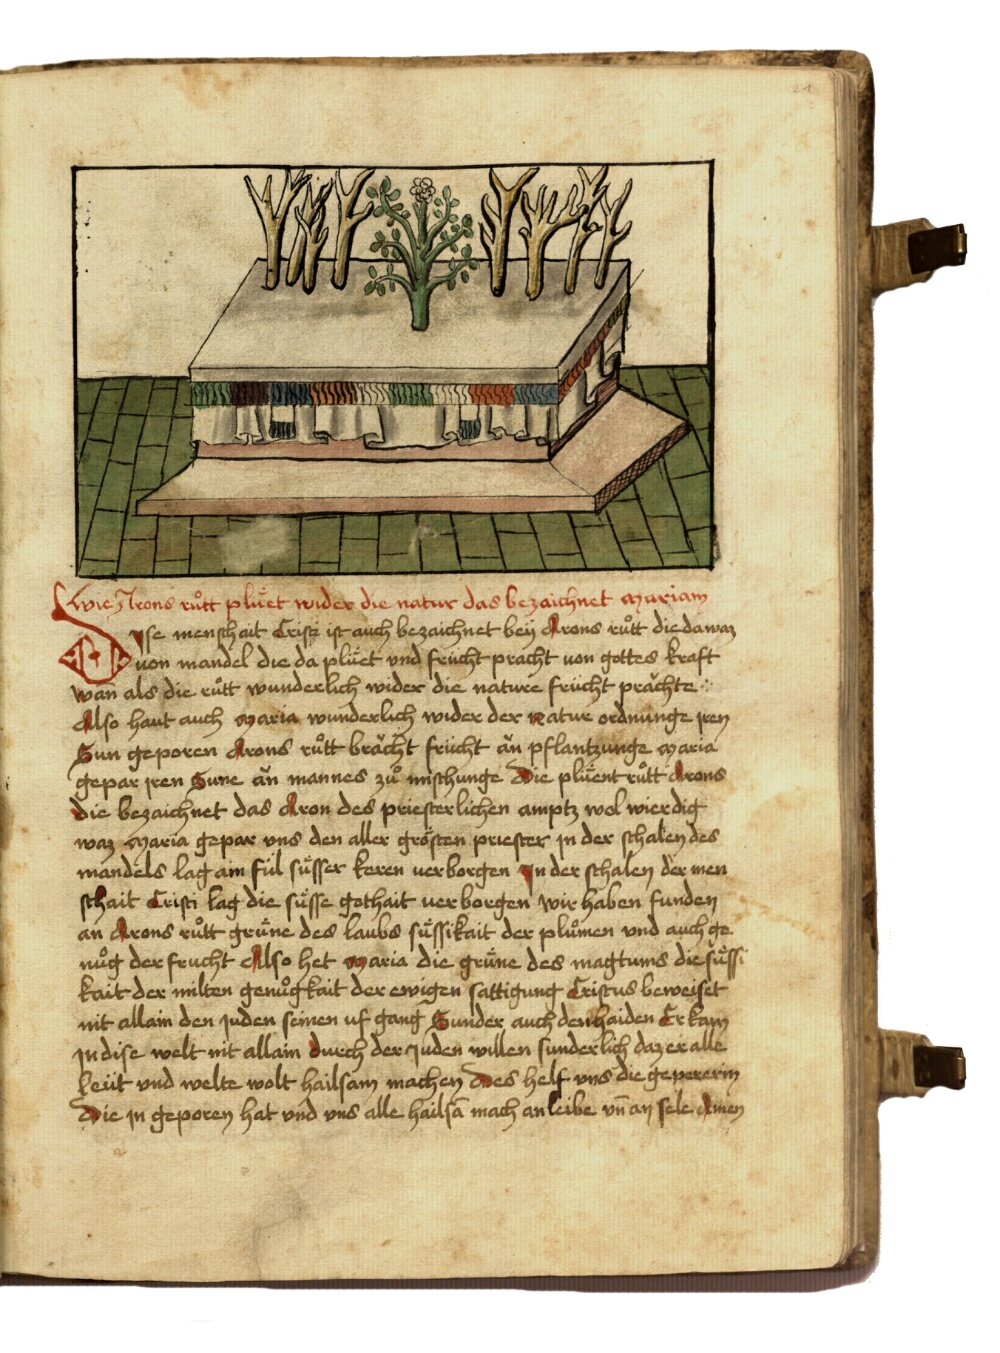 21
Wie Arons růtt plüet wider die natur das bezaichnet mariam
Dise menschait Cristi ist auch bezaichnet beÿ Arons růtt die da waz
von mandel die da plüet vnd frücht pracht von gottes kraft
wañ als die růtt wunderlich wider die nature frücht prächte
Also haut auch maria wunderlich wider der natur ordnunge iren
Sun geporen Arons růtt brächt frücht än pflantzunge maria
gepar iren Sune än mannes zů mischunge Die plüent růtt Arons
die bezaichnet das Aron des priesterlichen amptz wol wierdig
waz maria gepar vns den aller grösten priester in der schalen des
mandels lag ain fül süsser keren verborgen In der schalen der men
schait Cristi lag die süsse gothait verborgen wir haben funden
an Arons růtt grüne des laubs süssikait der plůmen vnd auch ge
nůg der frucht Also het maria die grüne des magtums die süssi
kait der milten genůgkait der ewigen sattigung Cristus beweiset
nit allain den Juden seinen uf gang Sunder auch den haiden Er kam
In dise welt nit allain durch der Juden willen sunderlich daz er alle
leüt vnd welte wolt hailsam machen Des helf vns die gepererin
Die in geporen hat vnd vns alle hailsā mach an leibe vñ an sele Amen